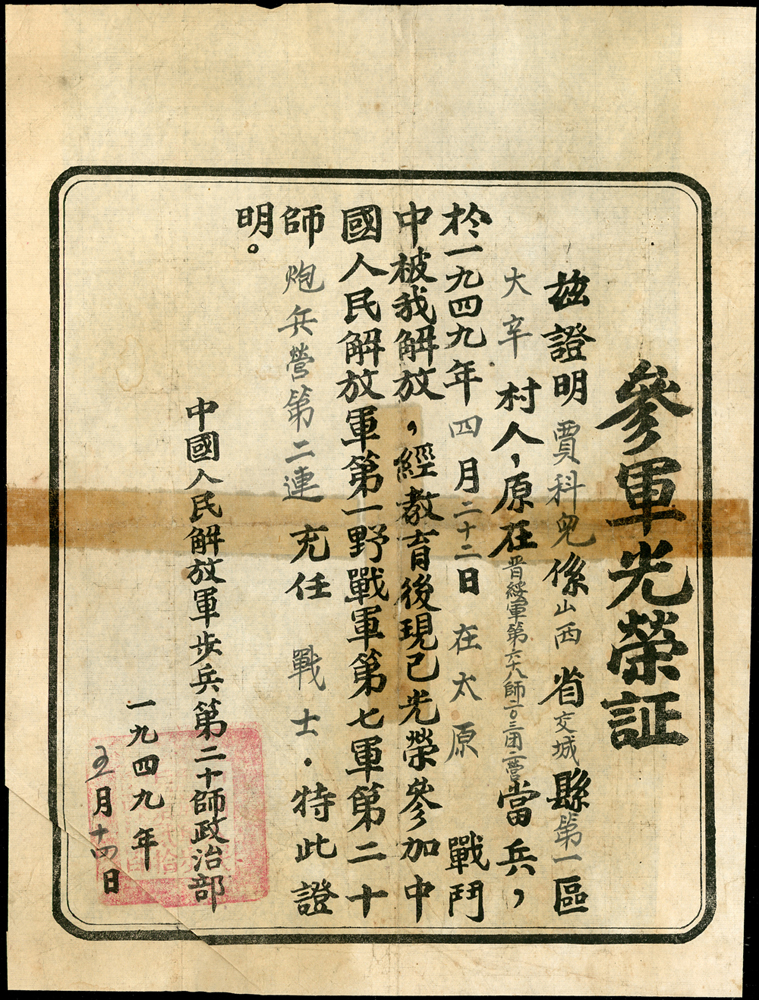 參軍光榮証
兹證明賈科兒係山西省交城縣第一區
大辛村人，原在晋綏軍第六十八師二〇三团二營當兵，
於一九四九年四月二十二日在太原戰鬥
中被我解放，經教育後現已光榮參加中
國人民解放軍第一野戰軍第七軍第二十
師炮兵營第二連充任戰士．特此證
明。
中國人民解放軍步兵第二十師政治部
一九四九年
五月十四日